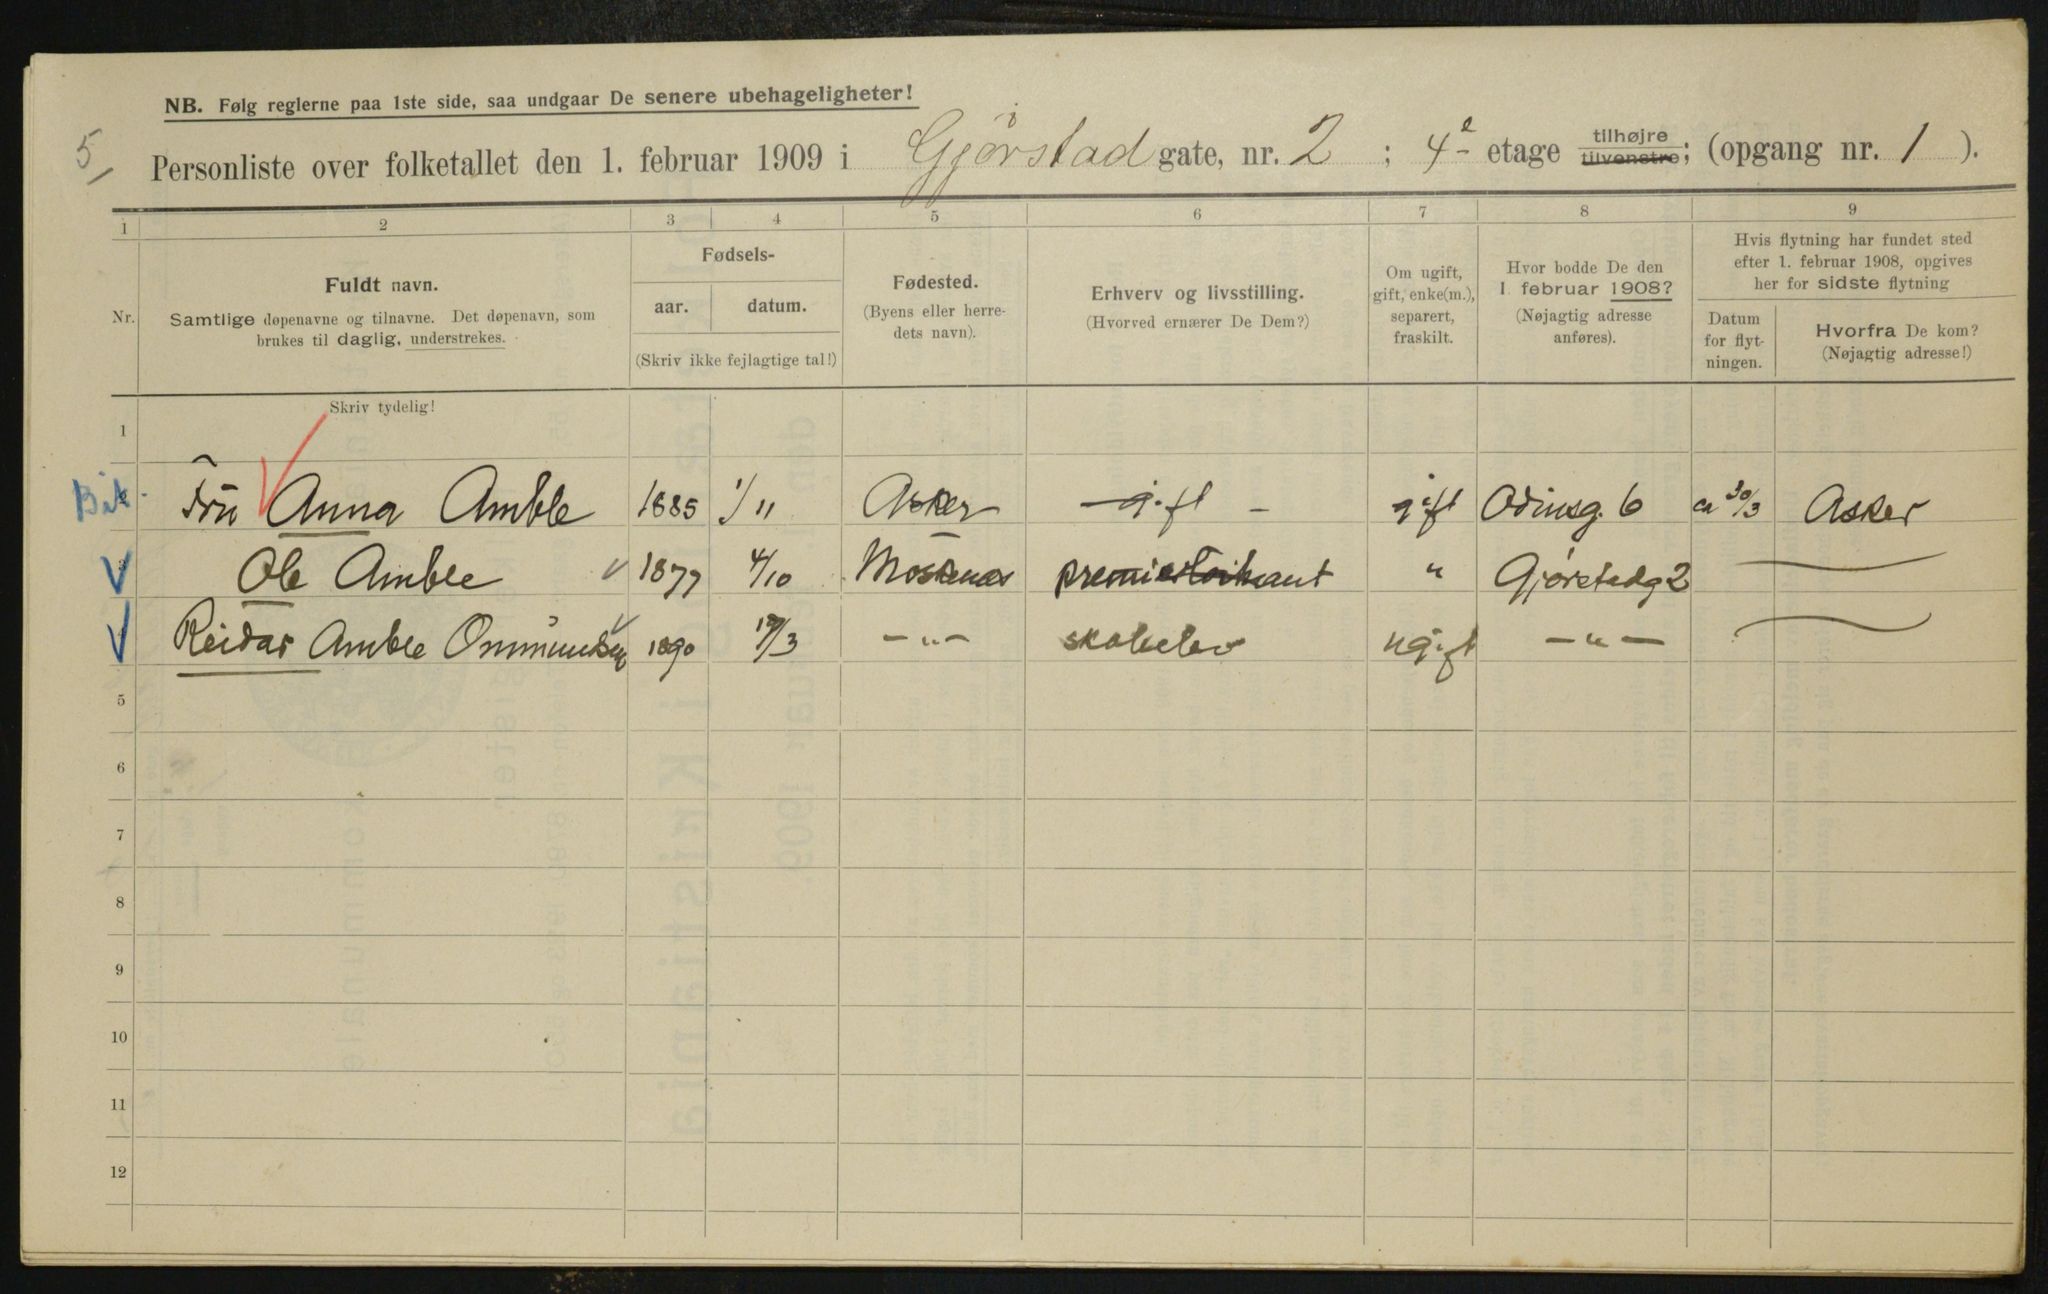 NB. Følg reglerne paa 1ste side, saa undgaar De senere ubehageligheter!
5,
Personliste over folketallet den 1. februar 1909 i Gjørstad gate, nr. 2 ; 4e etage tilhøjre tilvenstre; (opgang nr. 1 ).
1 2 3 4 5 6 7 8 9
Nr.
Fuldt navn.
Samtlige døpenavne og tilnavne. Det døpenavn, som
brukes til daglig, understrekes.
Fødsels-
aar. datum.
(Skriv ikke fejlagtige tal!)
Fødested.
(Byens eller herre-
dets navn).
Erhverv og livsstilling.
(Hvorved ernærer De Dem?)
Om ugift,
gift, enke(m.),
separert,
fraskilt.
Hvor bodde De den
1. februar 1908?
(Nøjagtig adresse
anføres).
Hvis flytning har fundet sted
efter 1. februar 1908, opgives
her for sidste flytning
Datum
for flyt-
ningen.
Hvorfra De kom?
(Nøjagtig adresse!)
Skriv tydelig!
1
Fru Anna Amble 1885 1/11 Asker gift - gift Odinsg. 6 ca 30/3 Asker
Ole Amble 1877 4/10 Moskenæs " Gjørstadg 2
Reidar Amble Ommundsen 1890 /3 -"- ugift -"-
5
6
7
8
9
10
11
12